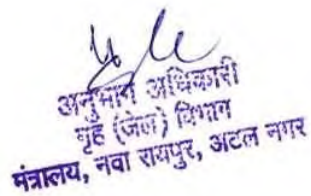 अनुभाग अधिकारी
गृह (जेल) विभाग
मंत्रालय, नवा रायपुर, अटल नगर